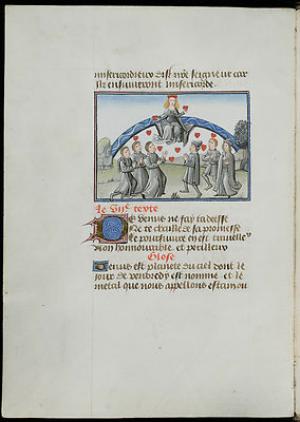 misericordieux dist nre seigneur car
ilz ensuivront misericorde.
Le vije texte
De venus ne fay ta deesse
Ne te chaille de sa promesse
Le poursuivre en est
non honnourable et perilleux
Glose
Venus est planete du ciel dont le
jour de vendredy est nomme et le
metal que nous appellons estain ou